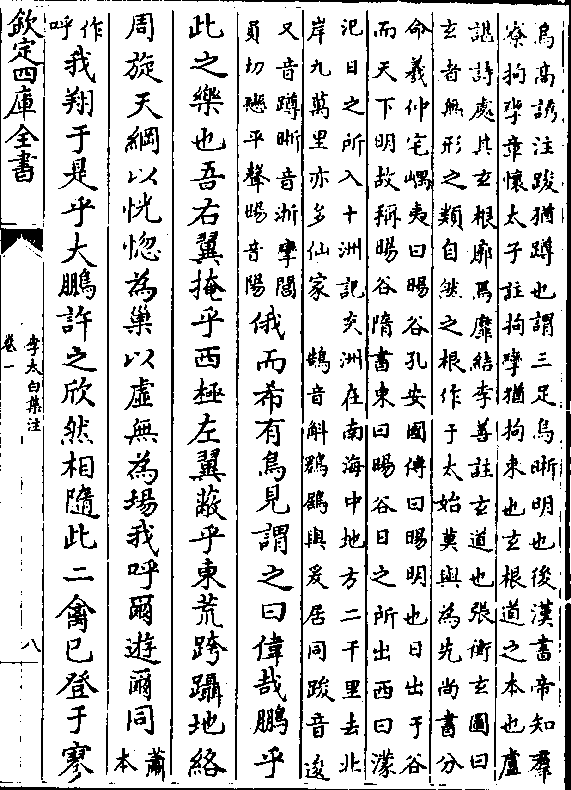 烏高誘注踆猶蹲也謂三足烏晰明也後漢書帝知羣
寮拘攣章懷太子註拘攣猶拘束也玄根道之本也盧
諶詩處其玄根廓焉靡結李善註玄道也張衡玄圖曰
玄者無形之類自然之根作于太始莫與為先尚書分
命羲仲宅嵎夷曰暘谷孔安國傳曰暘明也日出于谷
而天下明故稱暘谷隋書東曰暘谷日之所出西曰濛
汜日之所入十洲記炎洲在南海中地方二千里去北
岸九萬里亦多仙家 鵠音斛鶢鶋與爰居同踆音逡
又音蹲晰音淅攣閭
員切戀平聲暘音陽
俄而希有鳥見謂之曰偉哉鵬乎
此之樂也吾右翼掩乎西極左翼蔽乎東荒跨躡地絡
周旋天綱以恍惚為巢以虛無為場我呼爾遊爾同蕭本
作呼我翔于是乎大鵬許之欣然相隨此二禽已登于寥
欽定四庫全書
李太白集注
卷一
八